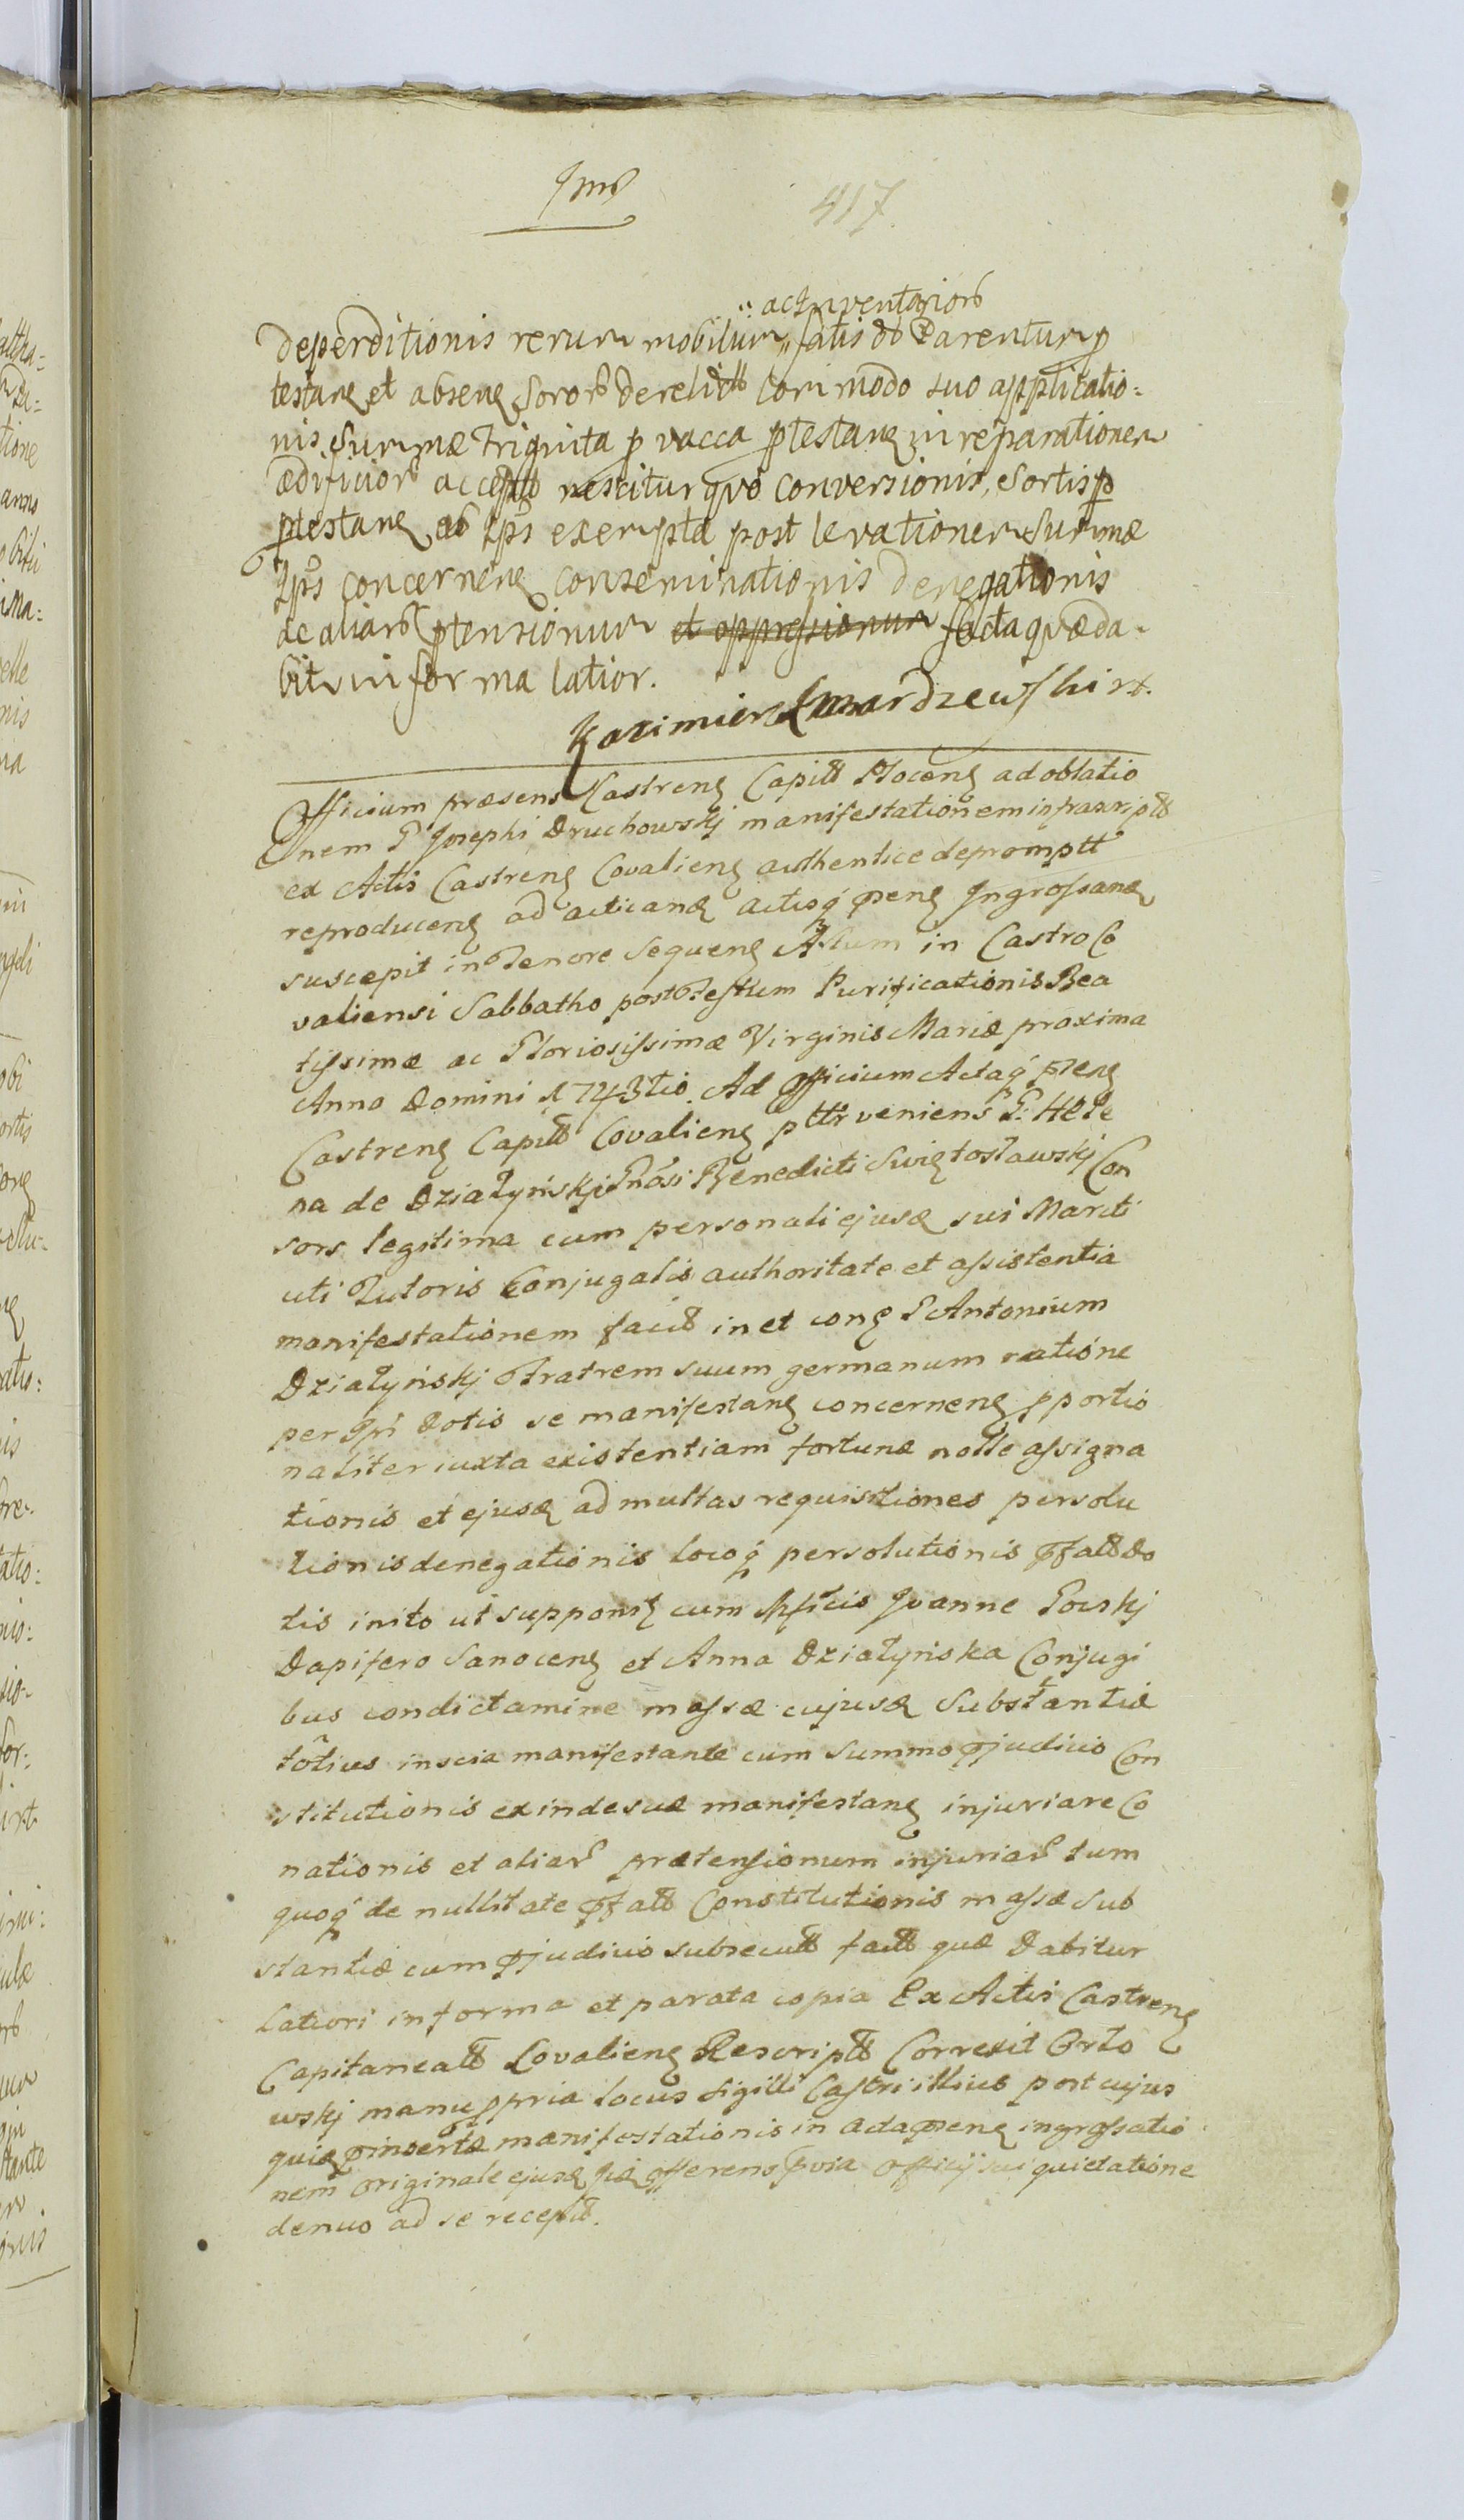 417.
ac Inventarior
deperditionis rerum mobilium fatis db Parentum p
testane et absene Soror derelictt Cori modo suo applicatio:
nis Summæ triginta p vacca ptestane in reparationem
ædificior acceptt nescitur quo conversionis, Sortis p
ptestane ab Ips exempta post levationem Summæ
Ips concernene conseminationis denegationis
ac aliar ptensionum et oppressionum facta quæ da-
bitur in forma latior.
Kazimierz Zmardzewski
Officium præsens Castrene Capitt Plocene ad oblatio
nem G Josephi Druchowskj manifestationem infrascriptt
ex Actis Castrene Covaliene authentice depromptt
reproducene ad acticand actisq pene Ingrossand
suscepit in Tenore Sequene Actum in Castro Co
valiensi Sabbatho post Festum Purificationis Bea
tissimæ ac Gloriosissimæ Virginis Mariæ proxima
Anno Domini 1743tio. Ad Officium Actaq pene
Castrene Capitt Covaliene pttr veniens G: Hele
na de Działyńskj Gnosi Benedicti Swiętosławskj Con
sors legitima cum personali ejusd sui Mariti
uti Tutoris Conjugalis authoritate et assistentia
manifestationem facit in et cone G Antonium
Działyńskj Fratrem suum germanum ratione
per Ipm dotis se manifestane concernene pportio
naliter iuxta existentiam fortunæ nolle assigna
tionis et ejusd ad multas requisitiones persolu
tionis denegationis locoq persolutionis pfatt do
tis inito ut supponit cum Mficis Joanne Gorskj
Dapifero Sanocene et Anna Działyńska Conjugi
bus condictamine massæ cujusd Substantiæ
totius inscia manifestante cum summo pjudicio Con
stitutionis exinde suæ manifestane injuriare Co
nationis et aliar prætensionum injuriar tum
quoq de nullitate pfatt Constitutionis massæ Sub
stantiæ cum pjudicio subsecutt factt quæ dabitur
latiori in forma et parata copia Ex Actis Castrene
Capitaneatt Covaliene Rescriptt Correxit Orło
wskj manu ppria Locus Sigilli Castri illius post cujus
quid pinsertæ manifestationis in acta pene ingrossatio
nem originale ejusd Id offerens pvia Officij sui quietatione
denuo ad se recepit.